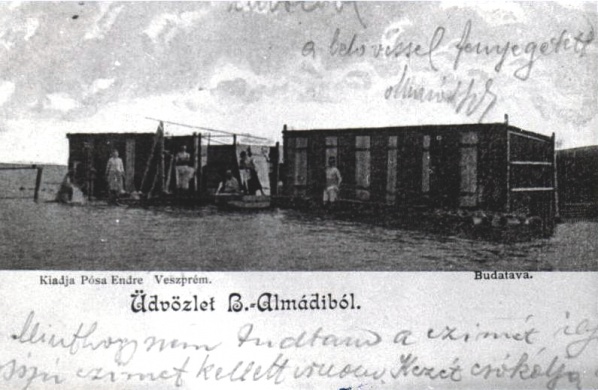 a belövéssel fenyegetett
Kiadja Pósa Endre Veszprém.
Budatava.
Üdvözlet B.-Almádiból.
Minthogy nem tudtam a czimét
czimet kellett irnom. Kezét csókolja